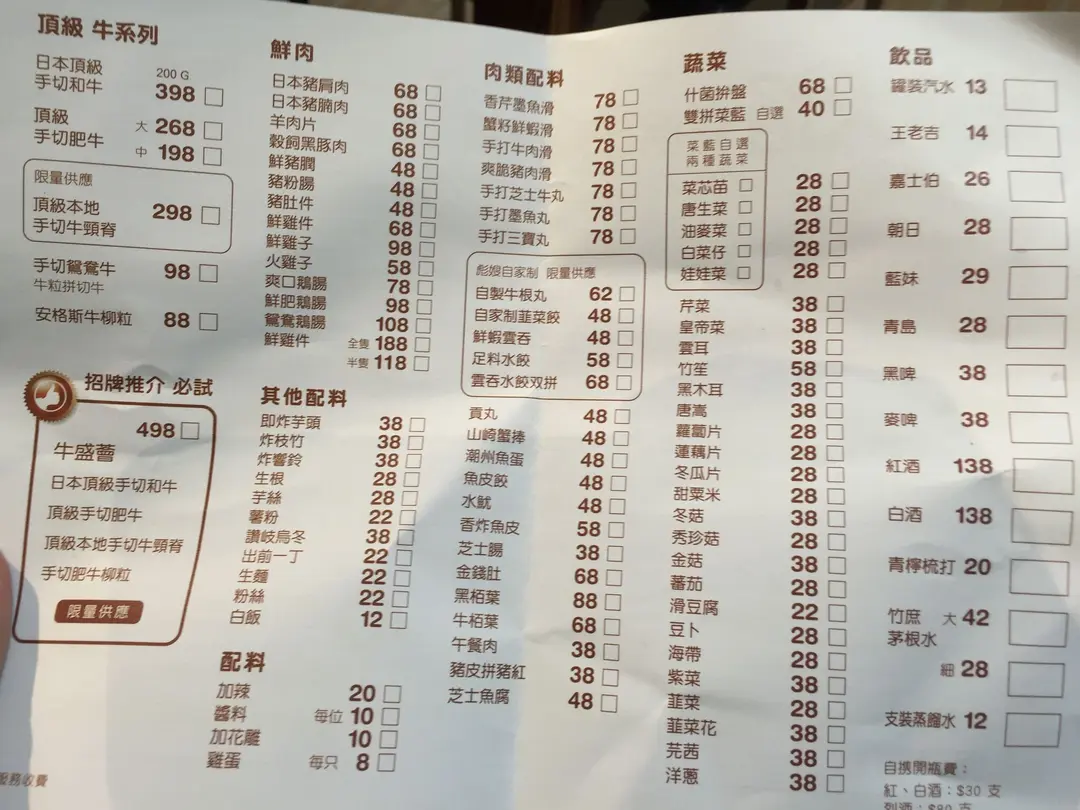 頂級 牛系列
日本頂級
手切和牛 200 G 398
頂級
手切肥牛 大 268
中 198
限量供應
頂級本地
手切牛頸脊 298
手切鴛鴦牛 98
牛粒拼切牛
安格斯牛柳粒 88
招牌推介 必試
498
牛盛薈
日本頂級手切和牛
頂級手切肥牛
頂級本地手切牛頸脊
手切肥牛柳粒
限量供應
服務收費
鮮肉
日本豬肩肉 68
日本豬腩肉 68
羊肉片 68
穀飼黑豚肉 68
鮮豬膶 48
豬粉腸 48
豬肚件 48
鮮雞件 68
鮮雞子 98
火雞子 58
爽口鵝腸 78
鮮肥鵝腸 98
鴛鴦鵝腸 108
鮮雞件 全隻 188
半隻 118
其他配料
即炸芋頭 38
炸枝竹 38
炸響鈴 38
生根 28
芋絲 28
薯粉 22
讚岐烏冬 38
出前一丁 22
生麵 22
粉絲 22
白飯 12
配料
加辣 20
醬料 每位 10
加花雕 10
雞蛋 每只 8
肉類配料
香芹墨魚滑 78
蟹籽鮮蝦滑 78
手打牛肉滑 78
爽脆豬肉滑 78
手打芝士牛丸 78
手打墨魚丸 78
手打三寶丸 78
彪嫂自家制 限量供應
自製牛根丸 62
自家制韮菜餃 48
鮮蝦雲吞 48
足料水餃 58
雲吞水餃双拼 68
貢丸 48
山崎蟹捧 48
潮州魚蛋 48
魚皮餃 48
水魷 48
香炸魚皮 58
芝士腸 38
金錢肚 68
黑栢葉 88
牛栢葉 68
午餐肉 38
豬皮拼豬紅 38
芝士魚腐 48
蔬菜
什菌拚盤 68
雙拼菜藍 自選 40
菜藍自選
兩種蔬菜
菜芯苗 28
唐生菜 28
油麥菜 28
白菜仔 28
娃娃菜 28
芹菜 38
皇帝菜 38
雲耳 38
竹笙 58
黑木耳 38
唐嵩 38
蘿蔔片 28
蓮藕片 28
冬瓜片 28
甜粟米 28
冬菇 38
秀珍菇 28
金菇 38
蕃茄 28
滑豆腐 22
豆卜 28
海帶 28
紫菜 38
韮菜 28
韮菜花 38
芫茜 38
洋蔥 38
飲品
罐裝汽水 13
王老吉 14
嘉士伯 26
朝日 28
藍妹 29
青島 28
黑啤 38
麥啤 38
紅酒 138
白酒 138
青檸梳打 20
竹庶 大 42
茅根水
細 28
支裝蒸餾水 12
自携開瓶費：
紅、白酒：$30 支
烈酒：$80 支